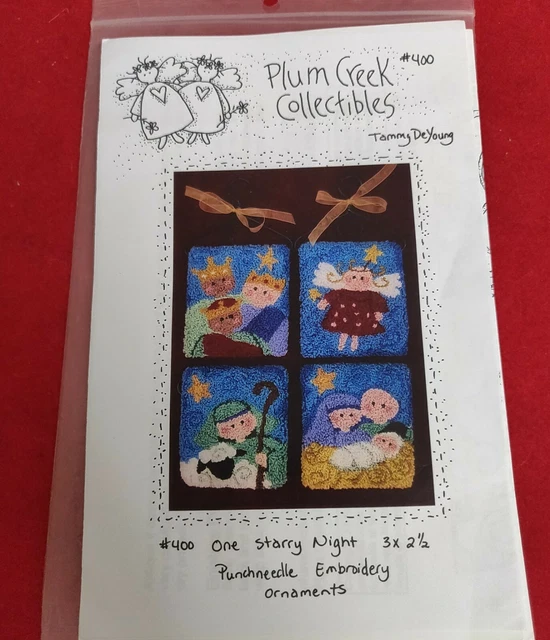 #400
Plum Creek
Collectibles
Tammy DeYoung
#400 One Starry Night 3x 2½
Punchneedle Embroidery
ornaments